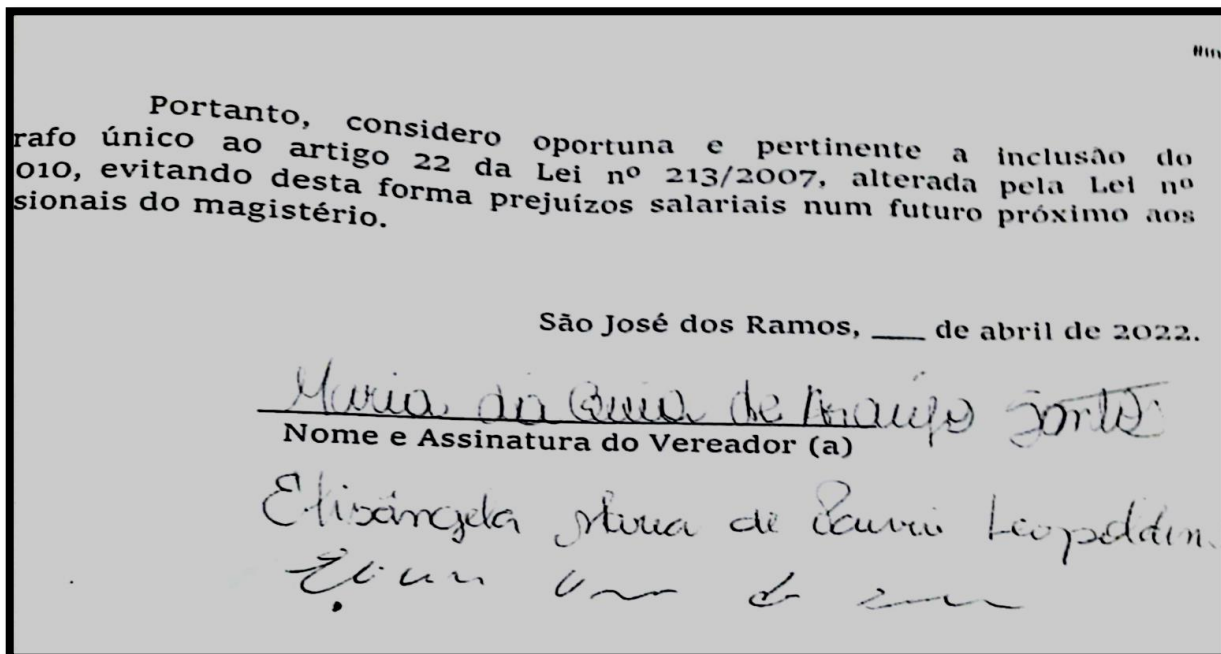 Portanto, considero oportuna e pertinente a inclusão do
rafo único ao artigo 22 da Lei nº 213/2007, alterada pela Lei nº
010, evitando desta forma prejuízos salariais num futuro próximo aos
sionais do magistério.
São José dos Ramos, ___ de abril de 2022.
Maria da de Araujo
Nome e Assinatura do Vereador (a)
Elisângela de